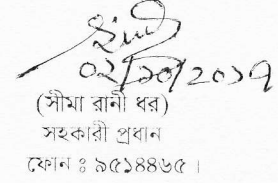 ০২/১০/২০১৭
(সীমা রানী ধর)
সহকারী প্রধান
ফোন ঃ ৯৫১৪৪৮৫ ।